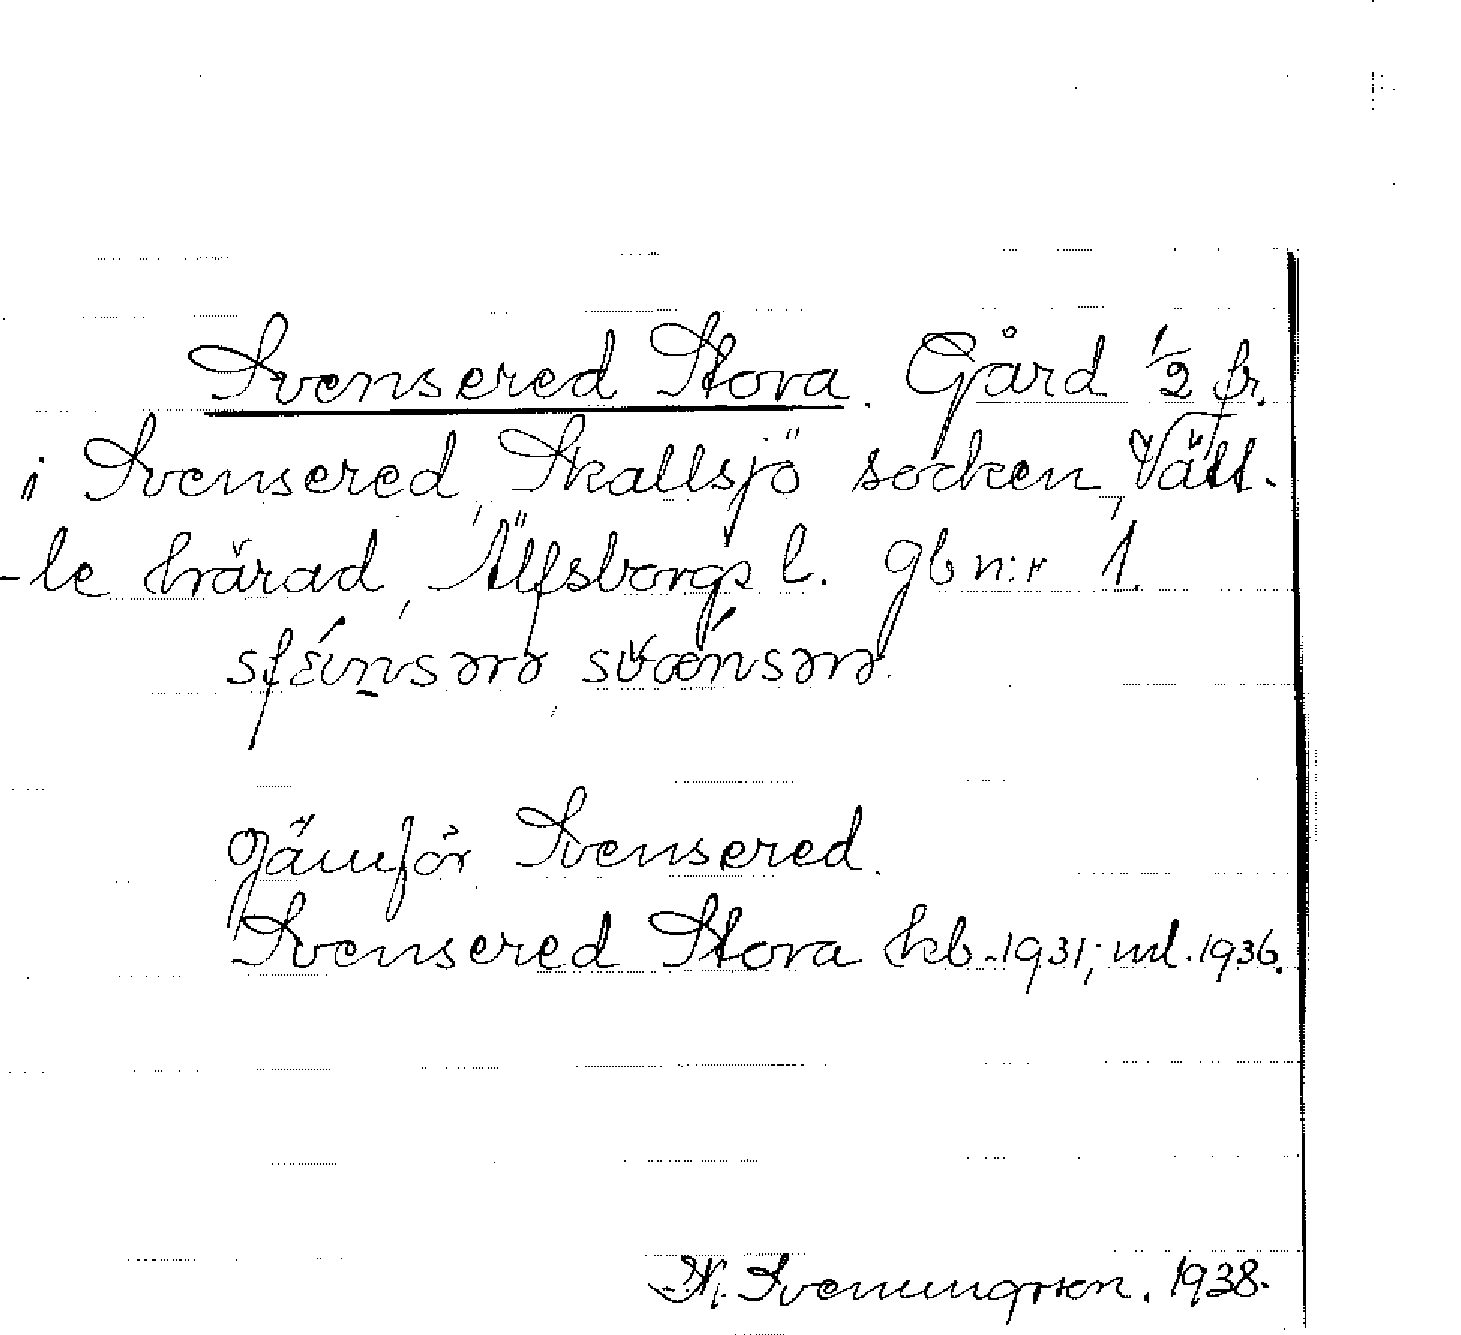 Svensered Stora. Gård 1/2 fr.
i Svensered, Skallsjö socken, Vätt-
-le härad, Älfsborgs l. gbn:r 1.
Jämför Svensered.
Svensered Stora kb. 1931; ml. 1936.
Sveningsson. 1938.